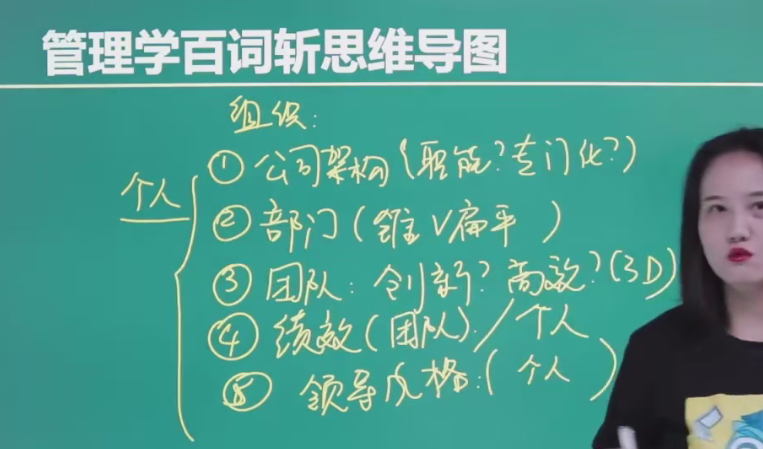 管理学百词斩思维导图
组织:
个人
① 公司架构(职能?专门化?)
② 部门(锥V扁平 )
③ 团队:创新?高效?(3D)
④ 绩效(团队)/个人
⑤ 领导风格:(个人 )